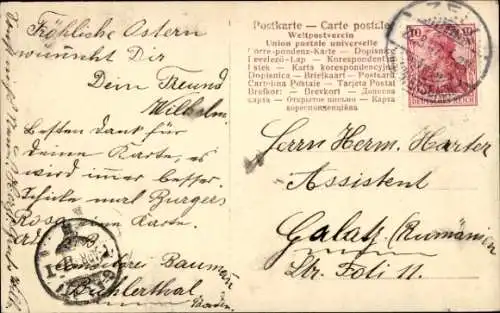 Fröhliche Ostern
wünscht Dir
Dein Freund
Wilhelm.
Besten Dank für
Deine Karte, es
wird immer besser.
Schicke mal Burgers
Rosa eine Karte.
Bauman
Bühlerthal
Baden.
Postkarte — Carte postale
Weltpostverein
Union postale universelle
Corre-pondenz-Karte — Dopisnica
Levelező-Lap — Korespondentní
lístek — Karta korespondencyjna
Dopisnica — Briefkaart — Postcard
Cartolina Postale — Tarjeta Postal
Brefkort — Brevkort — Дописна
карта — Открытое письмо — Карта
кореспонденційна
10
DEUTSCHES REICH
Herrn Herm. Harter
Assistent
Galatz (Rumänien)
Str. Foli 11.